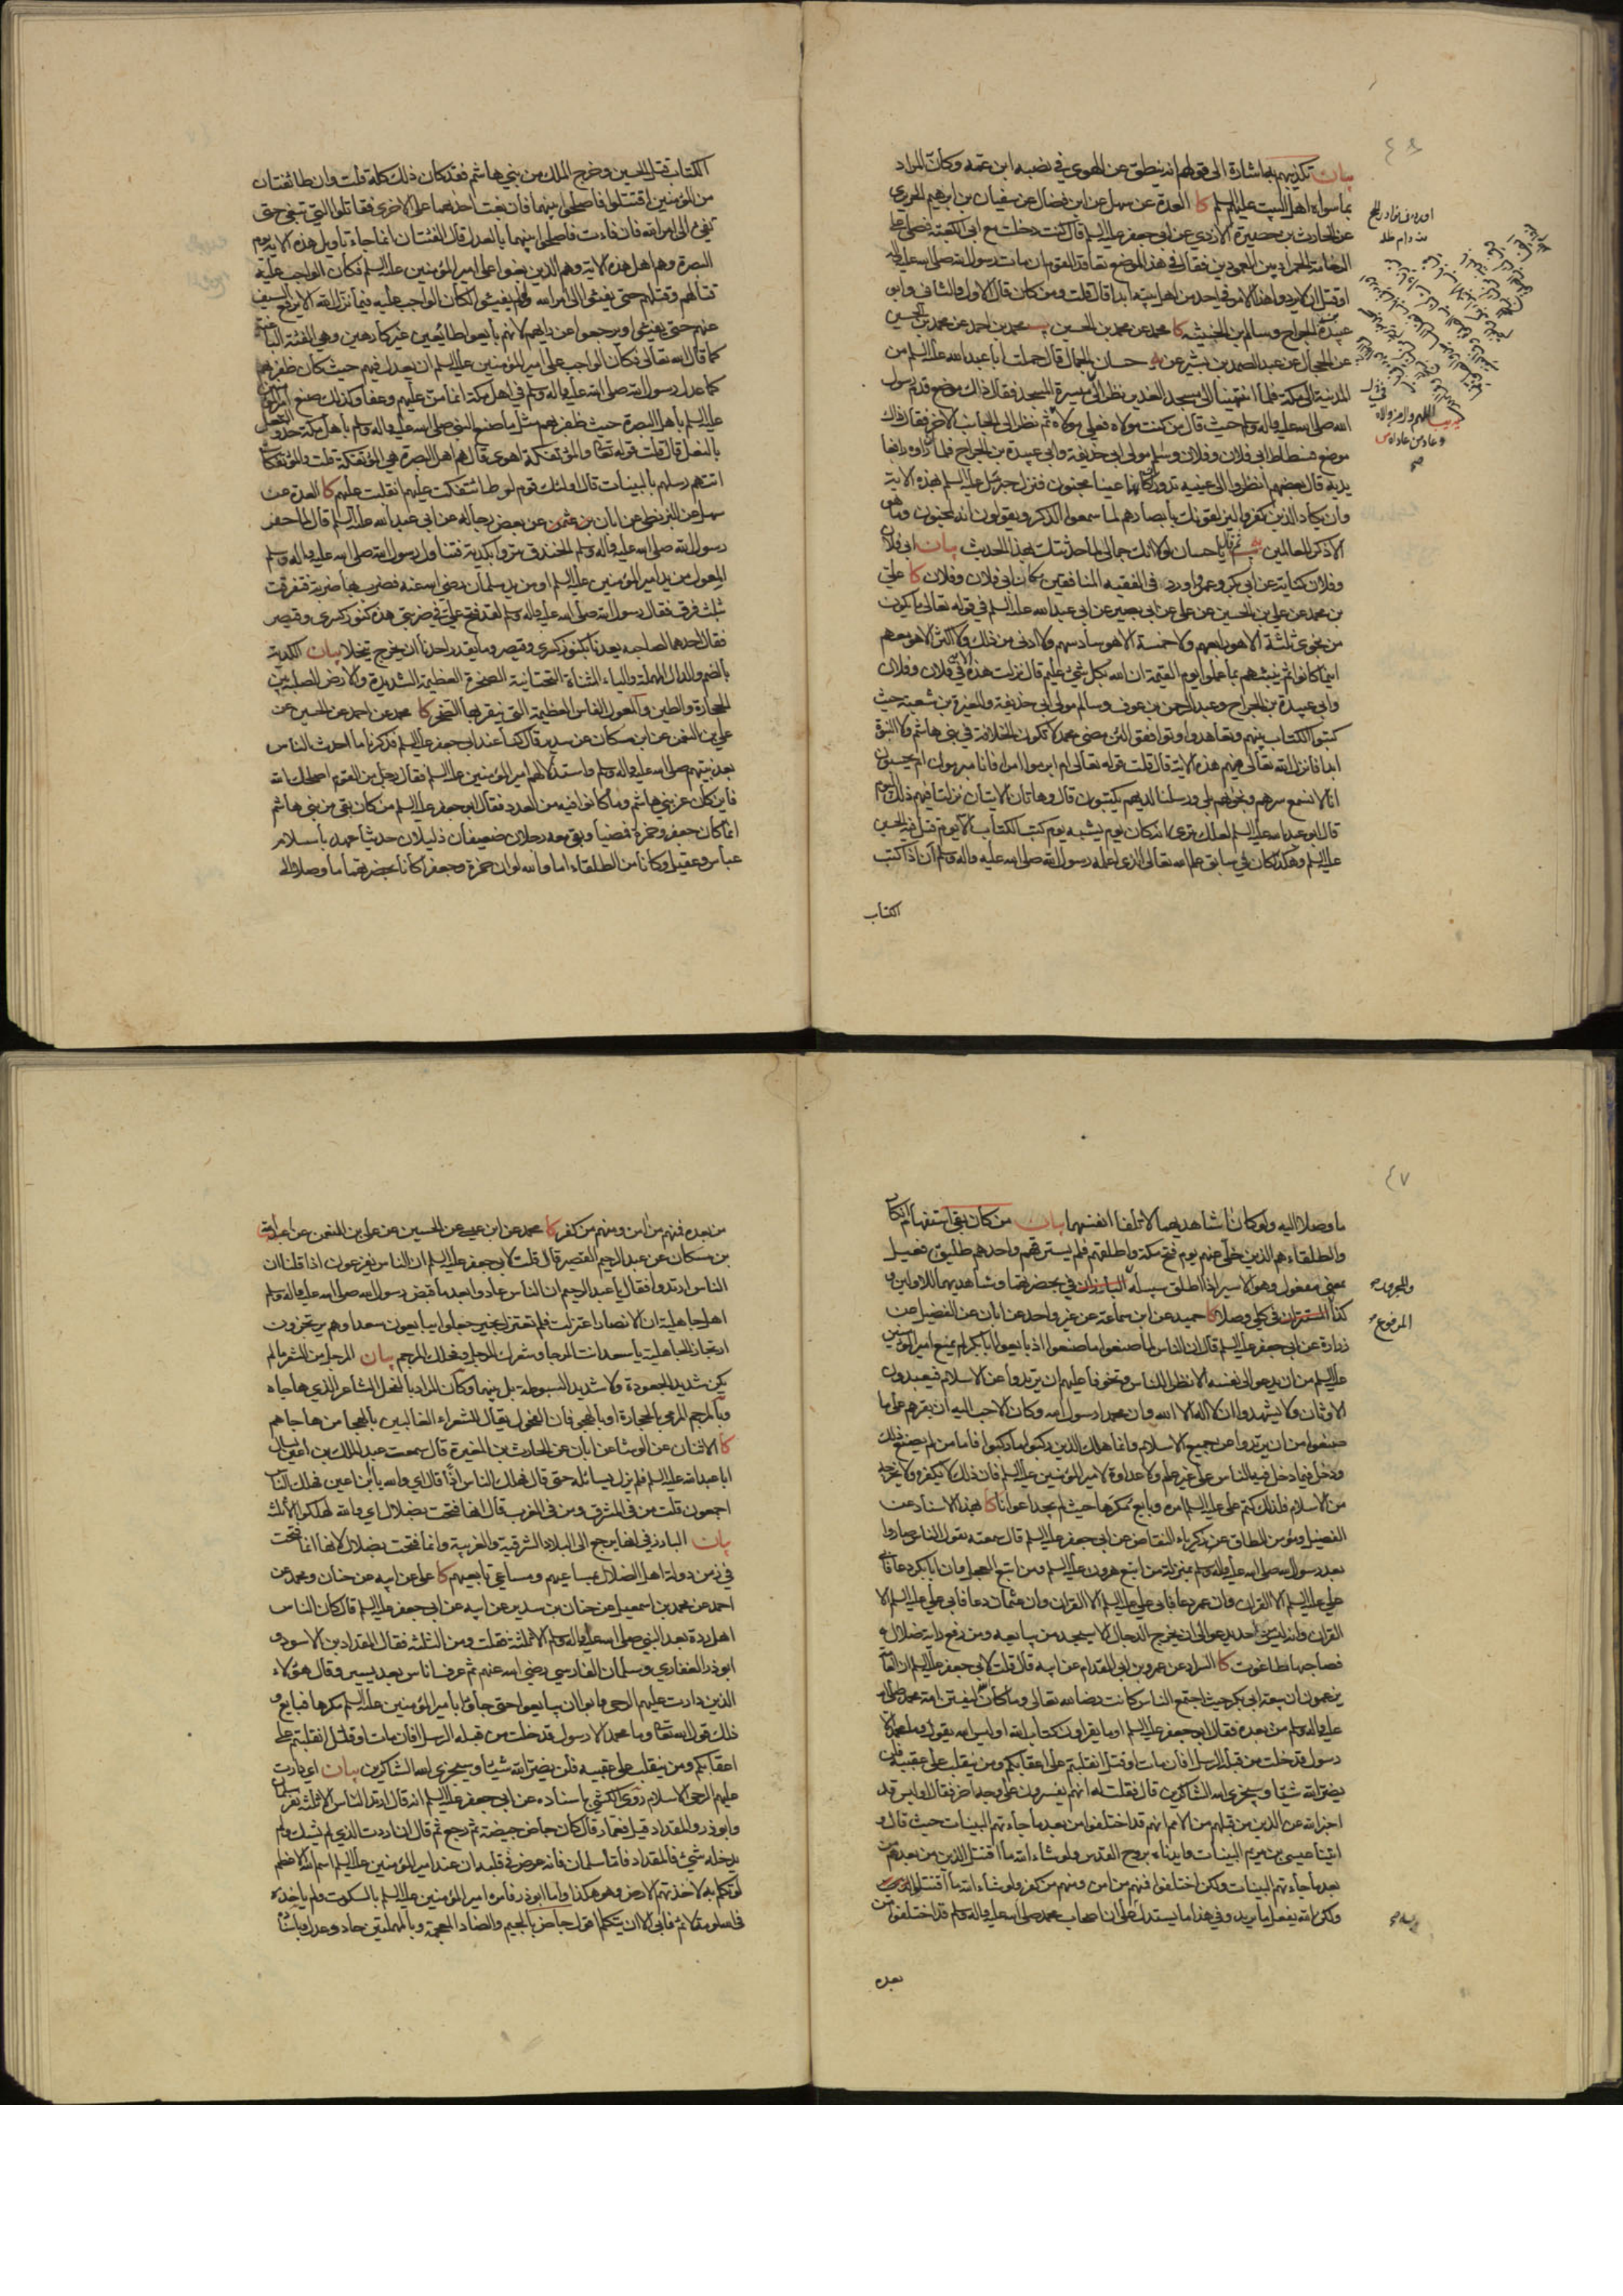 بيان تكذيبهم بها اشارة الى قولهم انه ينطق عن الهوى في نصبه ابن عمه وكان المراد
بما سواه اهل البيت عليهم السلم كا العدة عن سهل عن ابن فضال عن سفيان بن ابرهيم الحريري
عن الحارث بن حصيرة الازدي عن ابي جعفر عليه السلم قال كنت دخلت مع ابي الكعبة فصلى على
الرخامة الحمراء بين العمودين فقال في هذا الموضع تعاقد القوم ان مات رسول الله صلى الله عليه واله
او قتل الا يردوا هذا الامر في احد من اهل بيته ابدا قال قلت ومن كان قال الاول والثاني وابو
عبيدة بن الجراح وسالم بن الحبيبة كا محمد عن محمد بن الحسين يب محمد بن احمد عن محمد بن الحسين
عن الحجال عن عبد الصمد بن بشير عن حسان الجمال قال حملت ابا عبد الله عليه السلم من
المدينة الى مكة فلما انتهينا الى مسجد الغدير نظر الى ميسرة المسجد فقال ذاك موضع قدم رسول
الله صلى الله عليه واله وسلم حيث قال من كنت مولاه فعلي مولاه ثم نظر الى الجانب الاخر فقال ذاك
موضع فسطاط ابي فلان وفلان وسالم مولى ابي حذيفة وابي عبيدة بن الجراح فلما راوه رافعا
يديه قال بعضهم انظروا الى عينيه تدوران كانهما عينا مجنون فنزل جبرئيل عليه السلم بهذه الاية
وان يكاد الذين كفروا ليزلقونك بابصارهم لما سمعوا الذكر ويقولون انه لمجنون وما هو
الا ذكر للعالمين يب ثم قال يا حسان لولا انك جمالي لما حدثتك بهذا الحديث بيان ابي فلان
وفلان كناية عن ابي بكر وعمر واورد في الفقيه المنافقين مكان ابي فلان وفلان كا علي
بن محمد عن علي بن الحسين عن علي عن ابي بصير عن ابي عبد الله عليه السلم في قوله تعالى ما يكون
من نجوى ثلثة الا هو رابعهم ولا خمسة الا هو سادسهم ولا ادنى من ذلك ولا اكثر الا هو معهم
اينما كانوا ثم ينبئهم بما عملوا يوم القيمة ان الله بكل شيء عليم قال نزلت هذه الاية في فلان وفلان
وابي عبيدة بن الجراح وعبد الرحمن بن عوف وسالم مولى ابي حذيفة والمغيرة بن شعبة حيث
كتبوا الكتاب بينهم وتعاهدوا وتوافقوا لئن مضى محمد لا تكون الخلافة في بني هاشم ولا النبوة
ابدا فانزل الله تعالى فيهم هذه الاية قال قلت قوله تعالى ام ابرموا امرا فانا مبرمون ام يحسبون
انا لا نسمع سرهم ونجواهم بلى ورسلنا لديهم يكتبون قال وهاتان الايتان نزلتا فيهم ذلك اليوم
قال ابو عبد الله عليه السلم لعلك ترى انه كان يوم يشبه يوم كتب الكتاب الا يوم قتل الحسين
عليه السلم وهكذا كان في سابق علم الله تعالى الذي اعلمه رسول الله صلى الله عليه واله وسلم ان اذا كتب
الكتاب
اللهم وال من والاه
وعاد من عاداه
الكتاب قتل الحسين وخرج الملك من بني هاشم فقد كان ذلك كله قلت وان طائفتان
من المؤمنين اقتتلوا فاصلحوا بينهما فان بغت احداهما على الاخرى فقاتلوا التي تبغي حتى
تفيء الى امر الله فان فاءت فاصلحوا بينهما بالعدل قال الفئتان انما جاء تاويل هذه الاية يوم
البصرة وهم اهل هذه الاية وهم الذين بغوا على امير المؤمنين عليه السلم فكان الواجب عليه
قتالهم وقتلهم حتى يفيئوا الى امر الله ولو لم يفيئوا لكان الواجب عليه فيما انزل الله الا يرفع السيف
عنهم حتى يفيئوا ويرجعوا عن رايهم لانهم بايعوا طائعين غير كارهين وهي الفئة الباغية
كما قال الله تعالى فكان الواجب على امير المؤمنين عليه السلم ان يعدل فيهم حيث كان ظفر بهم
كما عدل رسول الله صلى الله عليه واله وسلم في اهل مكة انما من عليهم وعفا وكذلك صنع امير المؤمنين
عليه السلم باهل البصرة حيث ظفر بهم مثل ما صنع النبي صلى الله عليه واله وسلم باهل مكة حذو النعل
بالنعل قال قلت قوله تعالى والمؤتفكة اهوى قال هم اهل البصرة هي المؤتفكة قلت والمؤتفكات
اتتهم رسلهم بالبينات قال اولئك قوم لوط ائتفكت عليهم انقلبت عليهم كا العدة عن
سهل عن البزنطي عن ابان بن عثمن عن بعض رجاله عن ابي عبد الله عليه السلم قال لما حفر
رسول الله صلى الله عليه واله وسلم الخندق مروا بكدية فتناول رسول الله صلى الله عليه واله وسلم
المعول من يد امير المؤمنين عليه السلم او من يد سلمان رضي الله عنه فضرب بها ضربة فتفرقت
بثلث فرق فقال رسول الله صلى الله عليه واله وسلم لقد فتح علي في ضربتي هذه كنوز كسرى وقيصر
فقال احدهما لصاحبه يعدنا بكنوز كسرى وقيصر وما يقدر احدنا ان يخرج يتخلا بيان الكدية
بالضم والدال المهملة والياء المثناة التحتانية الصخرة العظيمة الشديدة والارض الصلبة بين
الحجارة والطين والمعول الفاس العظيمة التي ينقر بها الصخر كا محمد عن احمد عن الحسين عن
علي بن النعمن عن ابن مسكان عن سدير قال كنا عند ابي جعفر عليه السلم فذكرنا ما احدث الناس
بعد نبيهم صلى الله عليه واله وسلم واستذلالهم امير المؤمنين عليه السلم فقال رجل من القوم اصلحك الله
فاين كان عز بني هاشم وما كانوا فيه من العدد فقال ابو جعفر عليه السلم من كان بقي من بني هاشم
انما كان جعفر وحمزة فمضيا وبقي معه رجلان ضعيفان ذليلان حديثا عهد باسلام
عباس وعقيل وكانا من الطلقاء اما والله لو ان حمزة وجعفرا كانا بحضرتهما ما وصلا الى
٤٧
ما وصلا اليه ولو كانا شاهديهما لاتلفا انفسهما بيان من كان بقي استفهام انكار
والطلقاء هم الذين خلى عنهم يوم فتح مكة واطلقهم فلم يسترقهم واحدهم طليق فعيل
بمعنى مفعول وهو الاسير اذا اطلق سبيله البارزان في بحضرتهما وشاهديهما للاولين و
كذا المستتران في وصلا كا حميد عن ابن سماعة عن غير واحد عن ابان عن الفضيل عن
زرارة عن ابي جعفر عليه السلم قال ان الناس لما صنعوا ما صنعوا اذ بايعوا ابا بكر لم يمنع امير المؤمنين
عليه السلم من ان يدعو الى نفسه الا نظرا للناس وتخوفا عليهم ان يرتدوا عن الاسلام فيعبدون
الاوثان ولا يشهدوا ان لا اله الا الله وان محمدا رسول الله وكان الاحب اليه ان يقرهم على ما
صنعوا من ان يرتدوا عن جميع الاسلام وانما هلك الذين ركبوا ما ركبوا فاما من لم يصنع ذلك
ودخل فيما دخل فيه الناس على غير علم ولا عداوة لامير المؤمنين عليه السلم فان ذلك لا يكفره ولا يخرجه
من الاسلام فلذلك كتم علي عليه السلم امره وبايع مكرها حيث لم يجد اعوانا كا بهذا الاسناد عن
الفضيل ومؤمن الطاق عن زكرياء النقاض عن ابي جعفر عليه السلم قال سمعته يقول الناس صاروا
بعد رسول الله صلى الله عليه واله وسلم بمنزلة من اتبع هرون عليه السلم ومن اتبع العجل وان ابا بكر دعا فابى
علي عليه السلم الا القران وان عمر دعا فابى علي عليه السلم الا القران وان عثمان دعا فابى علي عليه السلم الا
القران وانه ليس من احد يدعو الى ان يخرج الدجال الا سيجد من يبايعه ومن رفع راية ضلالة
فصاحبها طاغوت كا السراد عن عمرو بن ابي المقدام عن ابيه قال قلت لابي جعفر عليه السلم ان العامة
يزعمون ان بيعة ابي بكر حيث اجتمع الناس كانت رضا لله تعالى وما كان الله ليفتن امة محمد صلى الله
عليه واله وسلم من بعده فقال ابو جعفر عليه السلم اوما يقراون كتاب الله اوليس الله يقول وما محمد الا
رسول قد خلت من قبله الرسل افان مات او قتل انقلبتم على اعقابكم ومن ينقلب على عقبيه فلن
يضر الله شيئا وسيجزي الله الشاكرين قال فقلت له انهم يفسرون على وجه اخر فقال اوليس قد
اخبر الله عن الذين من قبلهم من الامم انهم قد اختلفوا من بعد ما جاءتهم البينات حيث قال و
اتينا عيسى بن مريم البينات وايدناه بروح القدس ولو شاء الله ما اقتتل الذين من بعدهم من
بعد ما جاءتهم البينات ولكن اختلفوا فمنهم من امن ومنهم من كفر ولو شاء الله ما اقتتلوا
ولكن الله يفعل ما يريد وفي هذا ما يستدل على ان اصحاب محمد صلى الله عليه واله وسلم قد اختلفوا من
بعده
والمجرور
المرفوع
من بعده فمنهم من امن ومنهم من كفر كا محمد عن ابن عيسى عن الحسين عن علي بن النعمن عن عبد الله
بن مسكان عن عبد الرحيم القصير قال قلت لابي جعفر عليه السلم ان الناس يفزعون اذا قلنا ان
الناس ارتدوا فقال يا عبد الرحيم ان الناس عادوا بعد ما قبض رسول الله صلى الله عليه واله وسلم
اهل جاهلية ان الانصار اعتزلت فلم تعتزل بخير جعلوا يبايعون سعدا وهم يرتجزون
ارتجاز الجاهلية يا سعد انت المرجا وشعرك المرجل وفحلك المرجم بيان المرجل من الشعر ما لم
يكن شديد الجعودة ولا شديد السبوطة بل بينهما وكان المراد بالفحل الشاعر الذي هاجاه
وبالمرجم المرمي بالحجارة او بالهجي فان الفحول يقال للشعراء الغالبين بالهجا من هاجاهم
كا الاثنان عن الوشا عن ابان عن الحارث بن المغيرة قال سمعت عبد الملك بن اعين يسال
ابا عبد الله عليه السلم فلم يزل يسائله حتى قال فهلك الناس اذا قال اي والله يا ابن اعين فهلك الناس
اجمعون قلت من في المشرق ومن في المغرب قال انها فتحت بضلال اي والله لهلكوا الا ثلثة
بيان البارز في انها يرجع الى البلاد الشرقية والغربية وانما فتحت بضلال لانها انما فتحت
في زمن دولة اهل الضلال بمساعيهم ومساعي تابعيهم كا علي عن ابيه عن حنان ومحمد عن
احمد عن محمد بن اسمعيل عن حنان بن سدير عن ابيه عن ابي جعفر عليه السلم قال كان الناس
اهل ردة بعد النبي صلى الله عليه واله وسلم الا ثلثة فقلت ومن الثلثة فقال المقداد بن الاسود و
ابوذر الغفاري وسلمان الفارسي رضي الله عنهم ثم عرف اناس بعد يسير وقال هؤلاء
الذين دارت عليهم الرحى وابوا ان يبايعوا حتى جاؤا بامير المؤمنين عليه السلم مكرها فبايع و
ذلك قول الله تعالى وما محمد الا رسول قد خلت من قبله الرسل افان مات او قتل انقلبتم على
اعقابكم ومن ينقلب على عقبيه فلن يضر الله شيئا وسيجزي الله الشاكرين بيان اي دارت
عليهم الرحى الاسلام روى الكشي باسناده عن ابي جعفر عليه السلم انه قال ارتد الناس الا ثلثة نفر سلمان
وابوذر والمقداد قيل فعمار قال كان جاض جيضة ثم رجع ثم قال ان اردت الذي لم يشك ولم
يدخله شيء فالمقداد فاما سلمان فانه عرض في قلبه ان عند امير المؤمنين عليه السلم اسم الله الاعظم
لو تكلم به لاخذتهم الارض وهو هكذا واما ابوذر فامره امير المؤمنين عليه السلم بالسكوت ولم ياخذه
في الله لومة لائم فابى الا ان يتكلم اقول جاض بالجيم والضاد المعجمة وبالمهملتين حاد وعدل